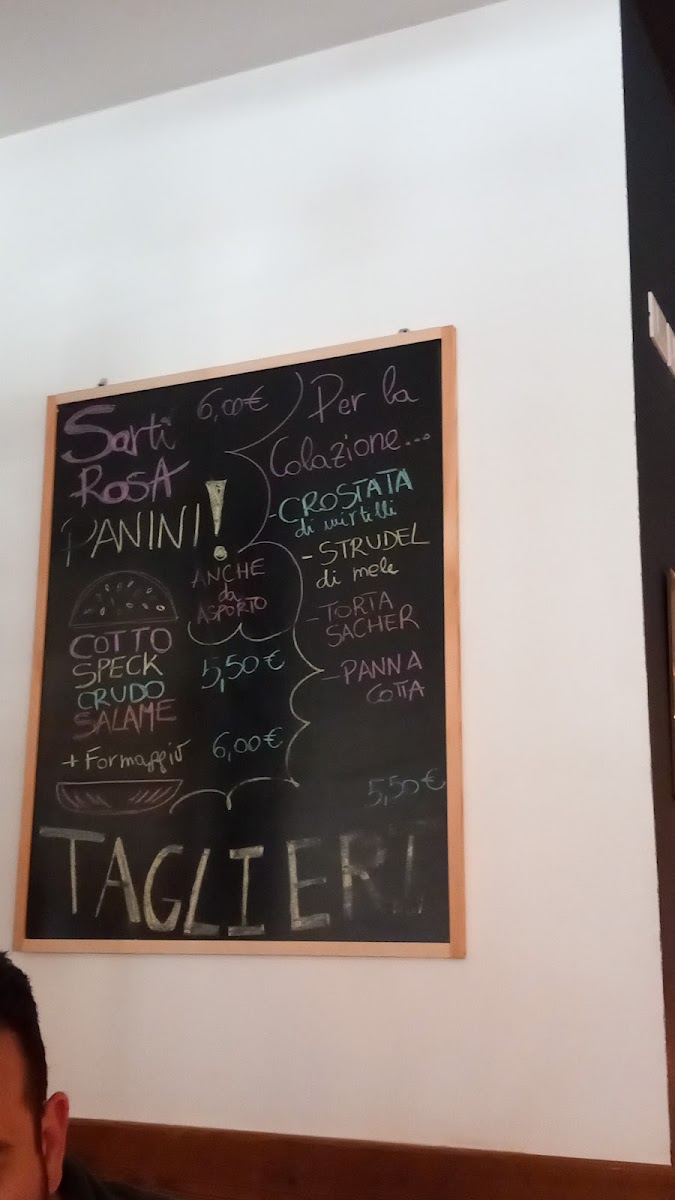 Sarti 6,00€
ROSA
PANINI!
ANCHE
da
ASPORTO
COTTO
SPECK
CRUDO
SALAME
5,50€
+ Formaggio 6,00€
Per la
Colazione...
- CROSTATA
di mirtilli
- STRUDEL
di mele
- TORTA
SACHER
- PANNA
COTTA
5,50€
TAGLIERI